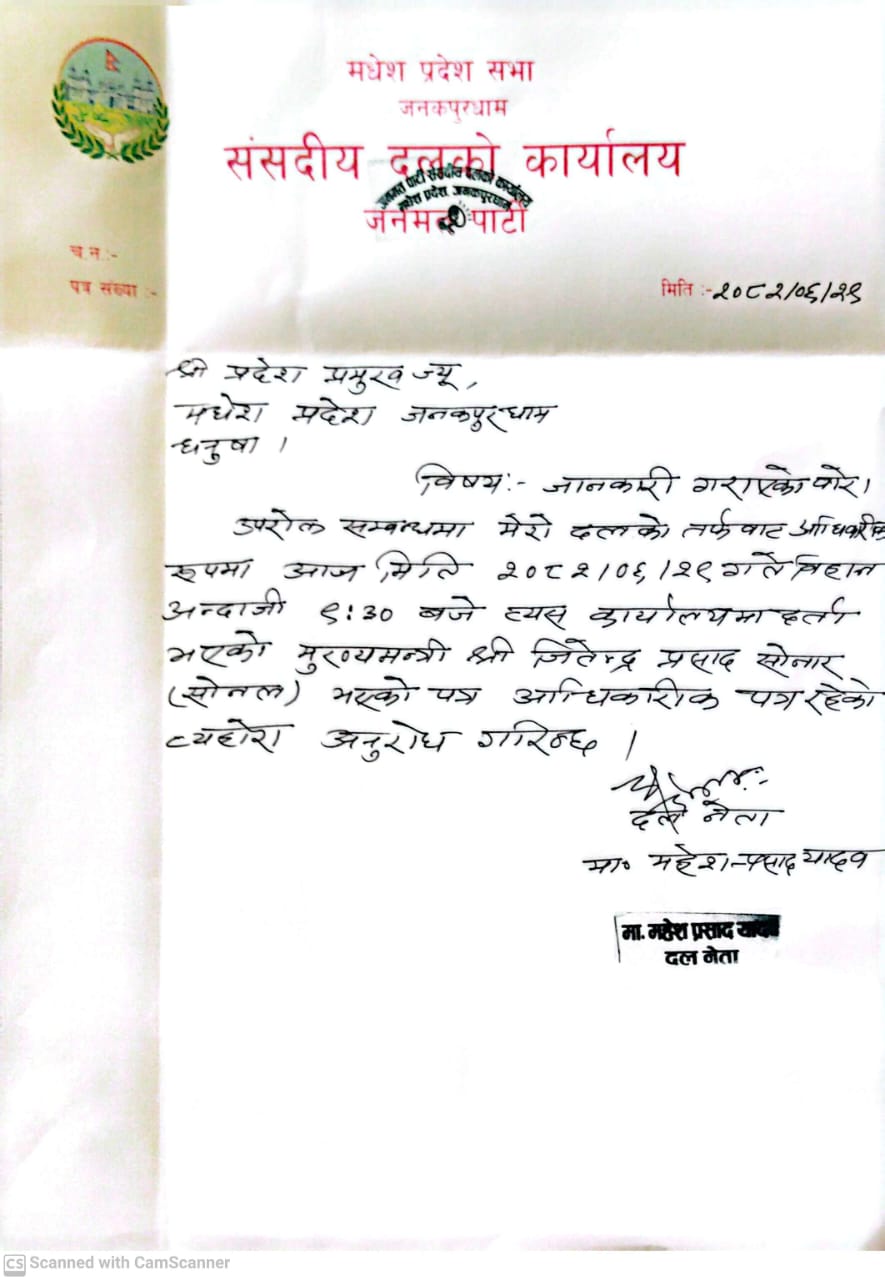 मधेश प्रदेश सभा
जनकपुरधाम
संसदीय दलको कार्यालय
जनमत पार्टी संसदीय दलको कार्यालय
मधेश प्रदेश, जनकपुरधाम
जनमत पार्टी
च.न.:-
पत्र संख्या :-
मिति :-२०८२/०६/२९
श्री प्रदेश प्रमुख ज्यू,
मधेश प्रदेश जनकपुरधाम
धनुषा ।
विषय:- जानकारी गराएको बारे।
उपरोक्त सम्बन्धमा मेरो दलको तर्फ बाट आधिकारीक
रुपमा आज मिति २०८२/०६/२९ गते विहान
अन्दाजी ९:30 बजे त्यस कार्यालयमा दर्ता
भएको मुख्यमन्त्री श्री जितेन्द्र प्रसाद सोनार
(सोनल) भएको पत्र आधिकारीक पत्र रहेको
व्यहोरा अनुरोध गरिन्छ ।
दल नेता
मा० महेश प्रसाद यादव
मा. महेश प्रसाद यादव
दल नेता
CS Scanned with CamScanner